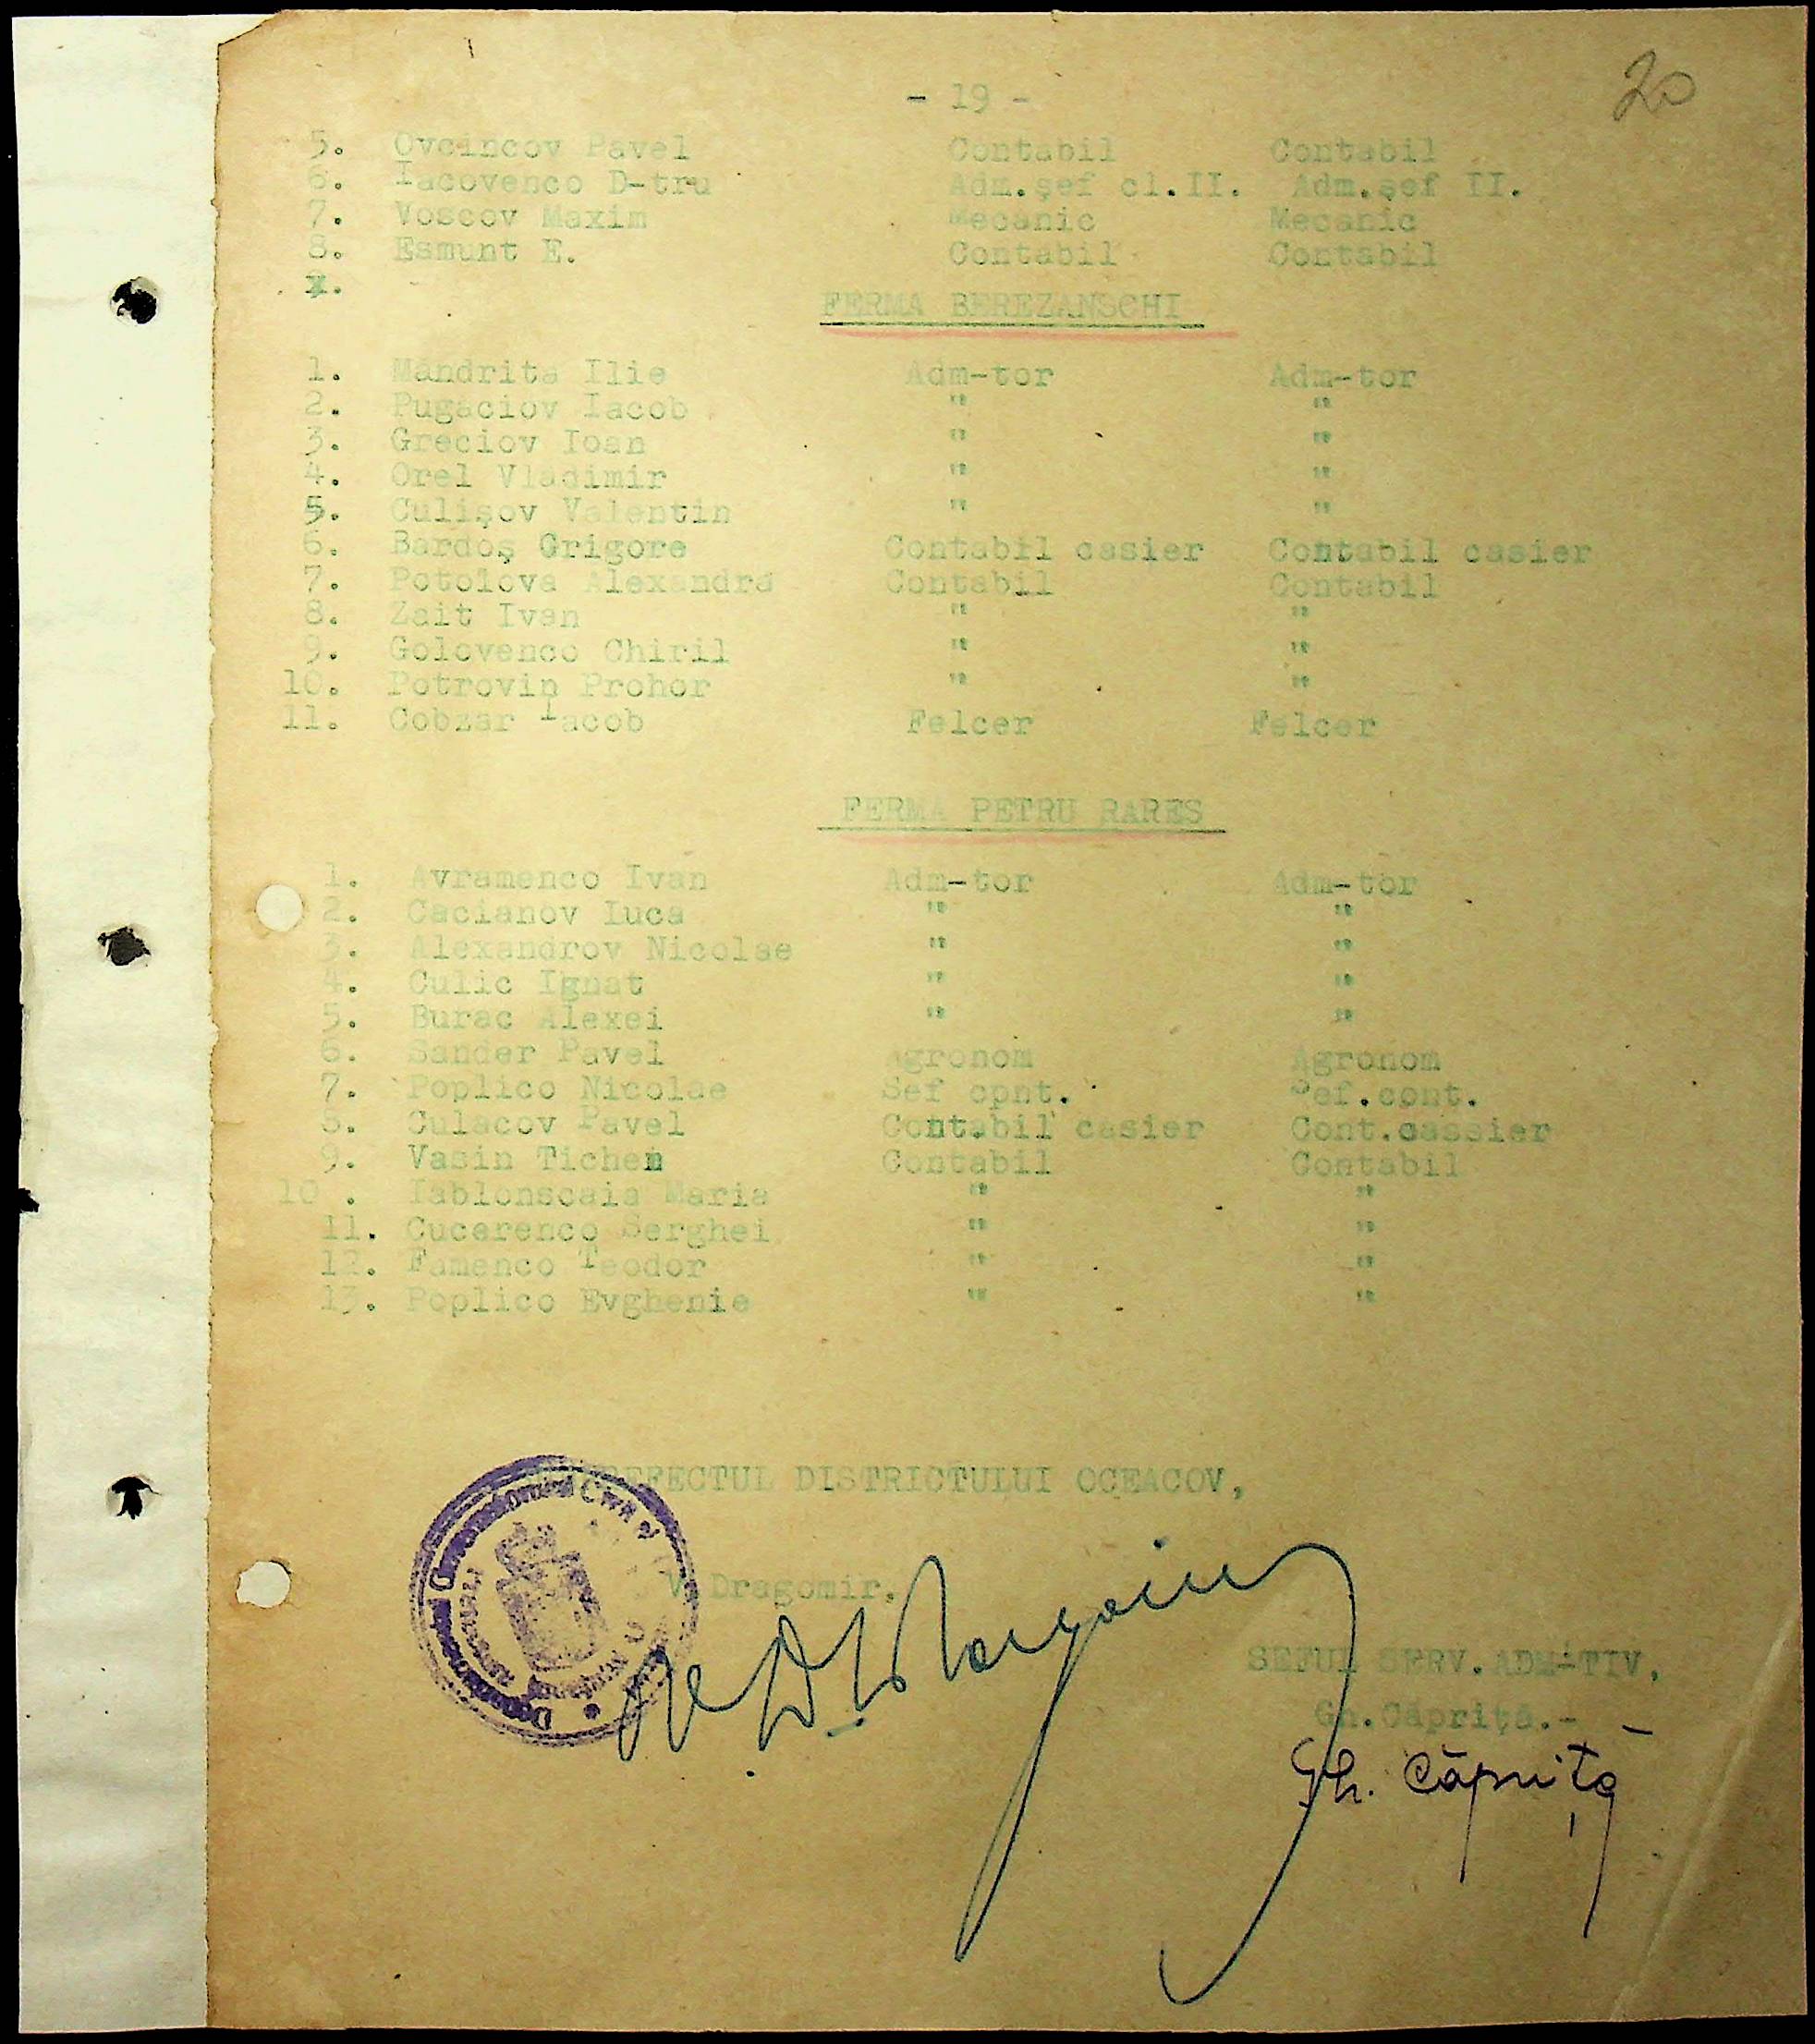 20
- 19 -
5. Ovcincov Pavel Contabil Contabil
6. Iacovenco D-tru Adm.şef cl.II. Adm.şef II.
7. Voscov Maxim Mecanic Mecanic
8. Esmunt E. Contabil Contabil
FERMA BEREZANSCHI
1. Mandrita Ilie Adm-tor Adm-tor
2. Pugaciov Iacob " "
3. Greciov Ioan " "
4. Orel Vladimir " "
5. Culişov Valentin " "
6. Bardoş Grigore Contabil casier Contabil casier
7. Potolova Alexandra Contabil Contabil
8. Zait Ivan " "
9. Golovenco Chiril " "
10. Potrovin Prohor " "
11. Cobzar Iacob Felcer Felcer
FERMA PETRU RARES
1. Avramenco Ivan Adm-tor Adm-tor
2. Cacianov Luca " "
3. Alexandrov Nicolae " "
4. Culic Ignat " "
5. Burac Alexei " "
6. Sander Pavel Agronom Agronom
7. Poplico Nicolae Sef cont. Sef.cont.
8. Culacov Pavel Contabil casier Cont.cassier
9. Vasin Tichen Contabil Contabil
10 . Iablonscaia Maria " "
11. Cucerenco Serghei " "
12. Famenco Teodor " "
13. Poplico Evghenie " "
PREFECTUL DISTRICTULUI OCEACOV,
V. Dragomir.
SEFUL SERV.ADM-TIV,
Gh.Căpriţă.-
Gh. Căpriţă